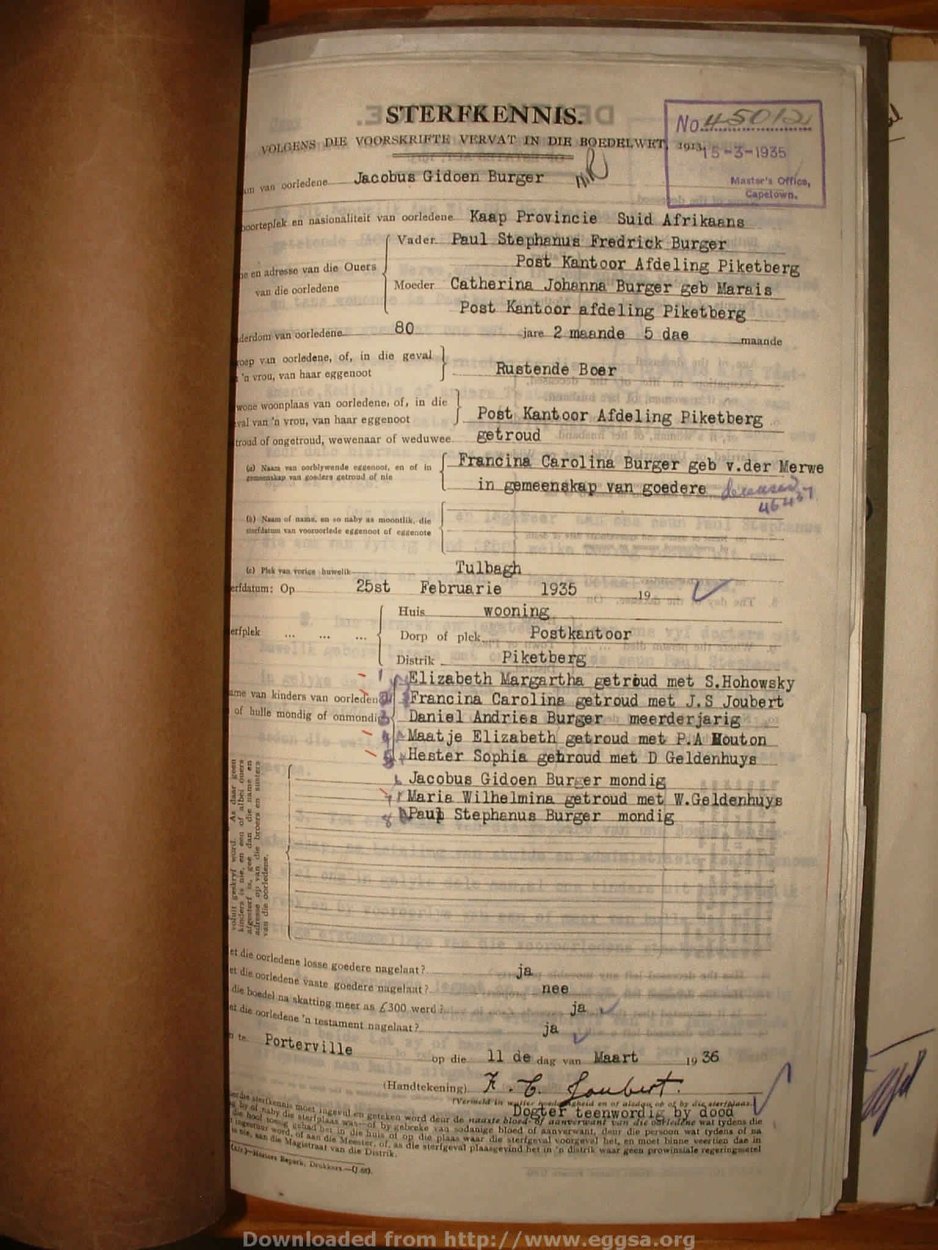 STERFKENNIS.
VOLGENS DIE VOORSKRIFTE VERVAT IN DIE BOEDELWET, 1913.
No. 45012
15-3-1935
Master's Office,
Capetown.
van oorledene Jacobus Gidoen Burger
oorteplek en nasionaliteit van oorledene Kaap Provincie Suid Afrikaans
Vader Paul Stephanus Fredrick Burger
Post Kantoor Afdeling Piketberg
en adresse van die Ouers
van die oorledene
Moeder Catherina Johanna Burger geb Marais
Post Kantoor afdeling Piketberg
derdom van oorledene 80 jare 2 maande 5 dae maande
roep van oorledene, of, in die geval
'n vrou, van haar eggenoot
Rustende Boer
wone woonplaas van oorledene, of, in die
val van 'n vrou, van haar eggenoot
Post Kantoor Afdeling Piketberg
troud of ongetroud, wewenaar of weduwee getroud
(a) Naam van oorblywende eggenoot, en of in
gemeenskap van goedere getroud of nie
Francina Carolina Burger geb v.der Merwe
in gemeenskap van goedere deceased
(b) Naam of name, en so naby as moontlik, die
sterfdatum van vooroorlede eggenoot of eggenote
(c) Plek van vorige huwelik Tulbagh
erfdatum: Op 25st Februarie 1935 19
Huis wooning
erfplek ... ... ...
Dorp of plek Postkantoor
Distrik Piketberg
1 Elizabeth Margartha getroud met S.Hohowsky
ame van kinders van oorledene 2 Francina Carolina getroud met J.S Joubert
of hulle mondig of onmondig 3 Daniel Andries Burger meerderjarig
4 Maatje Elizabeth getroud met P.A Mouton
5 Hester Sophia getroud met D Geldenhuys
6 Jacobus Gidoen Burger mondig
7 Maria Wilhelmina getroud met W.Geldenhuys
8 Paul Stephanus Burger mondig
voluit geskryf word. As daar geen
kinders is nie, en een of albei ouers
afgesterf is, gee dan die name en
adresse op van die broers en susters
van die oorledene.
et die oorledene losse goedere nagelaat? ja
et die oorledene vaste goedere nagelaat? nee
die boedel na skatting meer as £300 werd? ja
et die oorledene 'n testament nagelaat? ja
te Porterville op die 11 de dag van Maart 19 36
(Handtekening) F. C. Joubert.
Dogter teenwordig by dood
Downloaded from http://www.eggsa.org